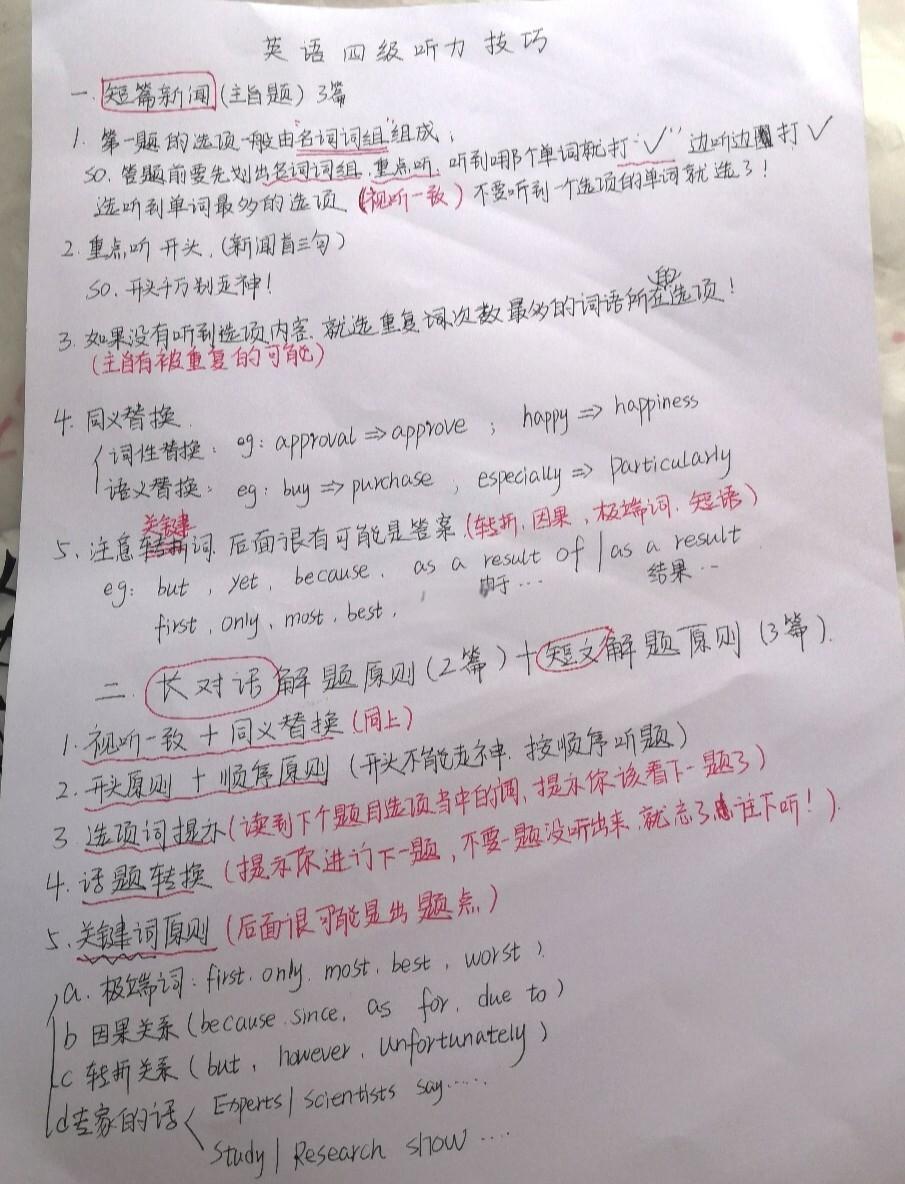 英语四级听力技巧
一. 短篇新闻 (主旨题) 3篇
1. 第一题的选项一般由"名词词组"组成;
SO. 答题前要先划出名词词组. 重点听. 听到哪个单词就打"✓" 边听边打✓
选听到单词最多的选项 (视听一致) 不要听到一个选项的单词就选了!
2. 重点听 开头. (新闻首三句)
SO. 开头千万别走神!
3. 如果没有听到选项内容. 就选重复词次数最多的词语所在选项!
(主旨有被重复的可能)
4. 同义替换.
词性替换: eg: approval ⇒ approve ; happy ⇒ happiness
语义替换: eg: buy ⇒ purchase ; especially ⇒ particularly
5. 注意关键词. 后面很有可能是答案 (转折. 因果. 极端词. 短语)
eg: but , yet , because , as a result of | as a result
由于... 结果...
first , only , most , best ,
二. 长对话解题原则 (2篇) + 短文解题原则 (3篇).
1. 视听一致 + 同义替换 (同上)
2. 开头原则 + 顺序原则 (开头不能走神. 按顺序听题)
3. 选项词提示 (读到下个题目选项当中的词, 提示你该看下一题了)
4. 话题转换 (提示你进行下一题, 不要一题没听出来, 就忘了往下听!).
5. 关键词原则 (后面很可能是出题点)
a. 极端词: first. only. most. best , worst ).
b 因果关系 (because. since, as for, due to)
c 转折关系 (but , however , unfortunately)
d 专家的话 Experts | scientists say......
Study | Research show ....